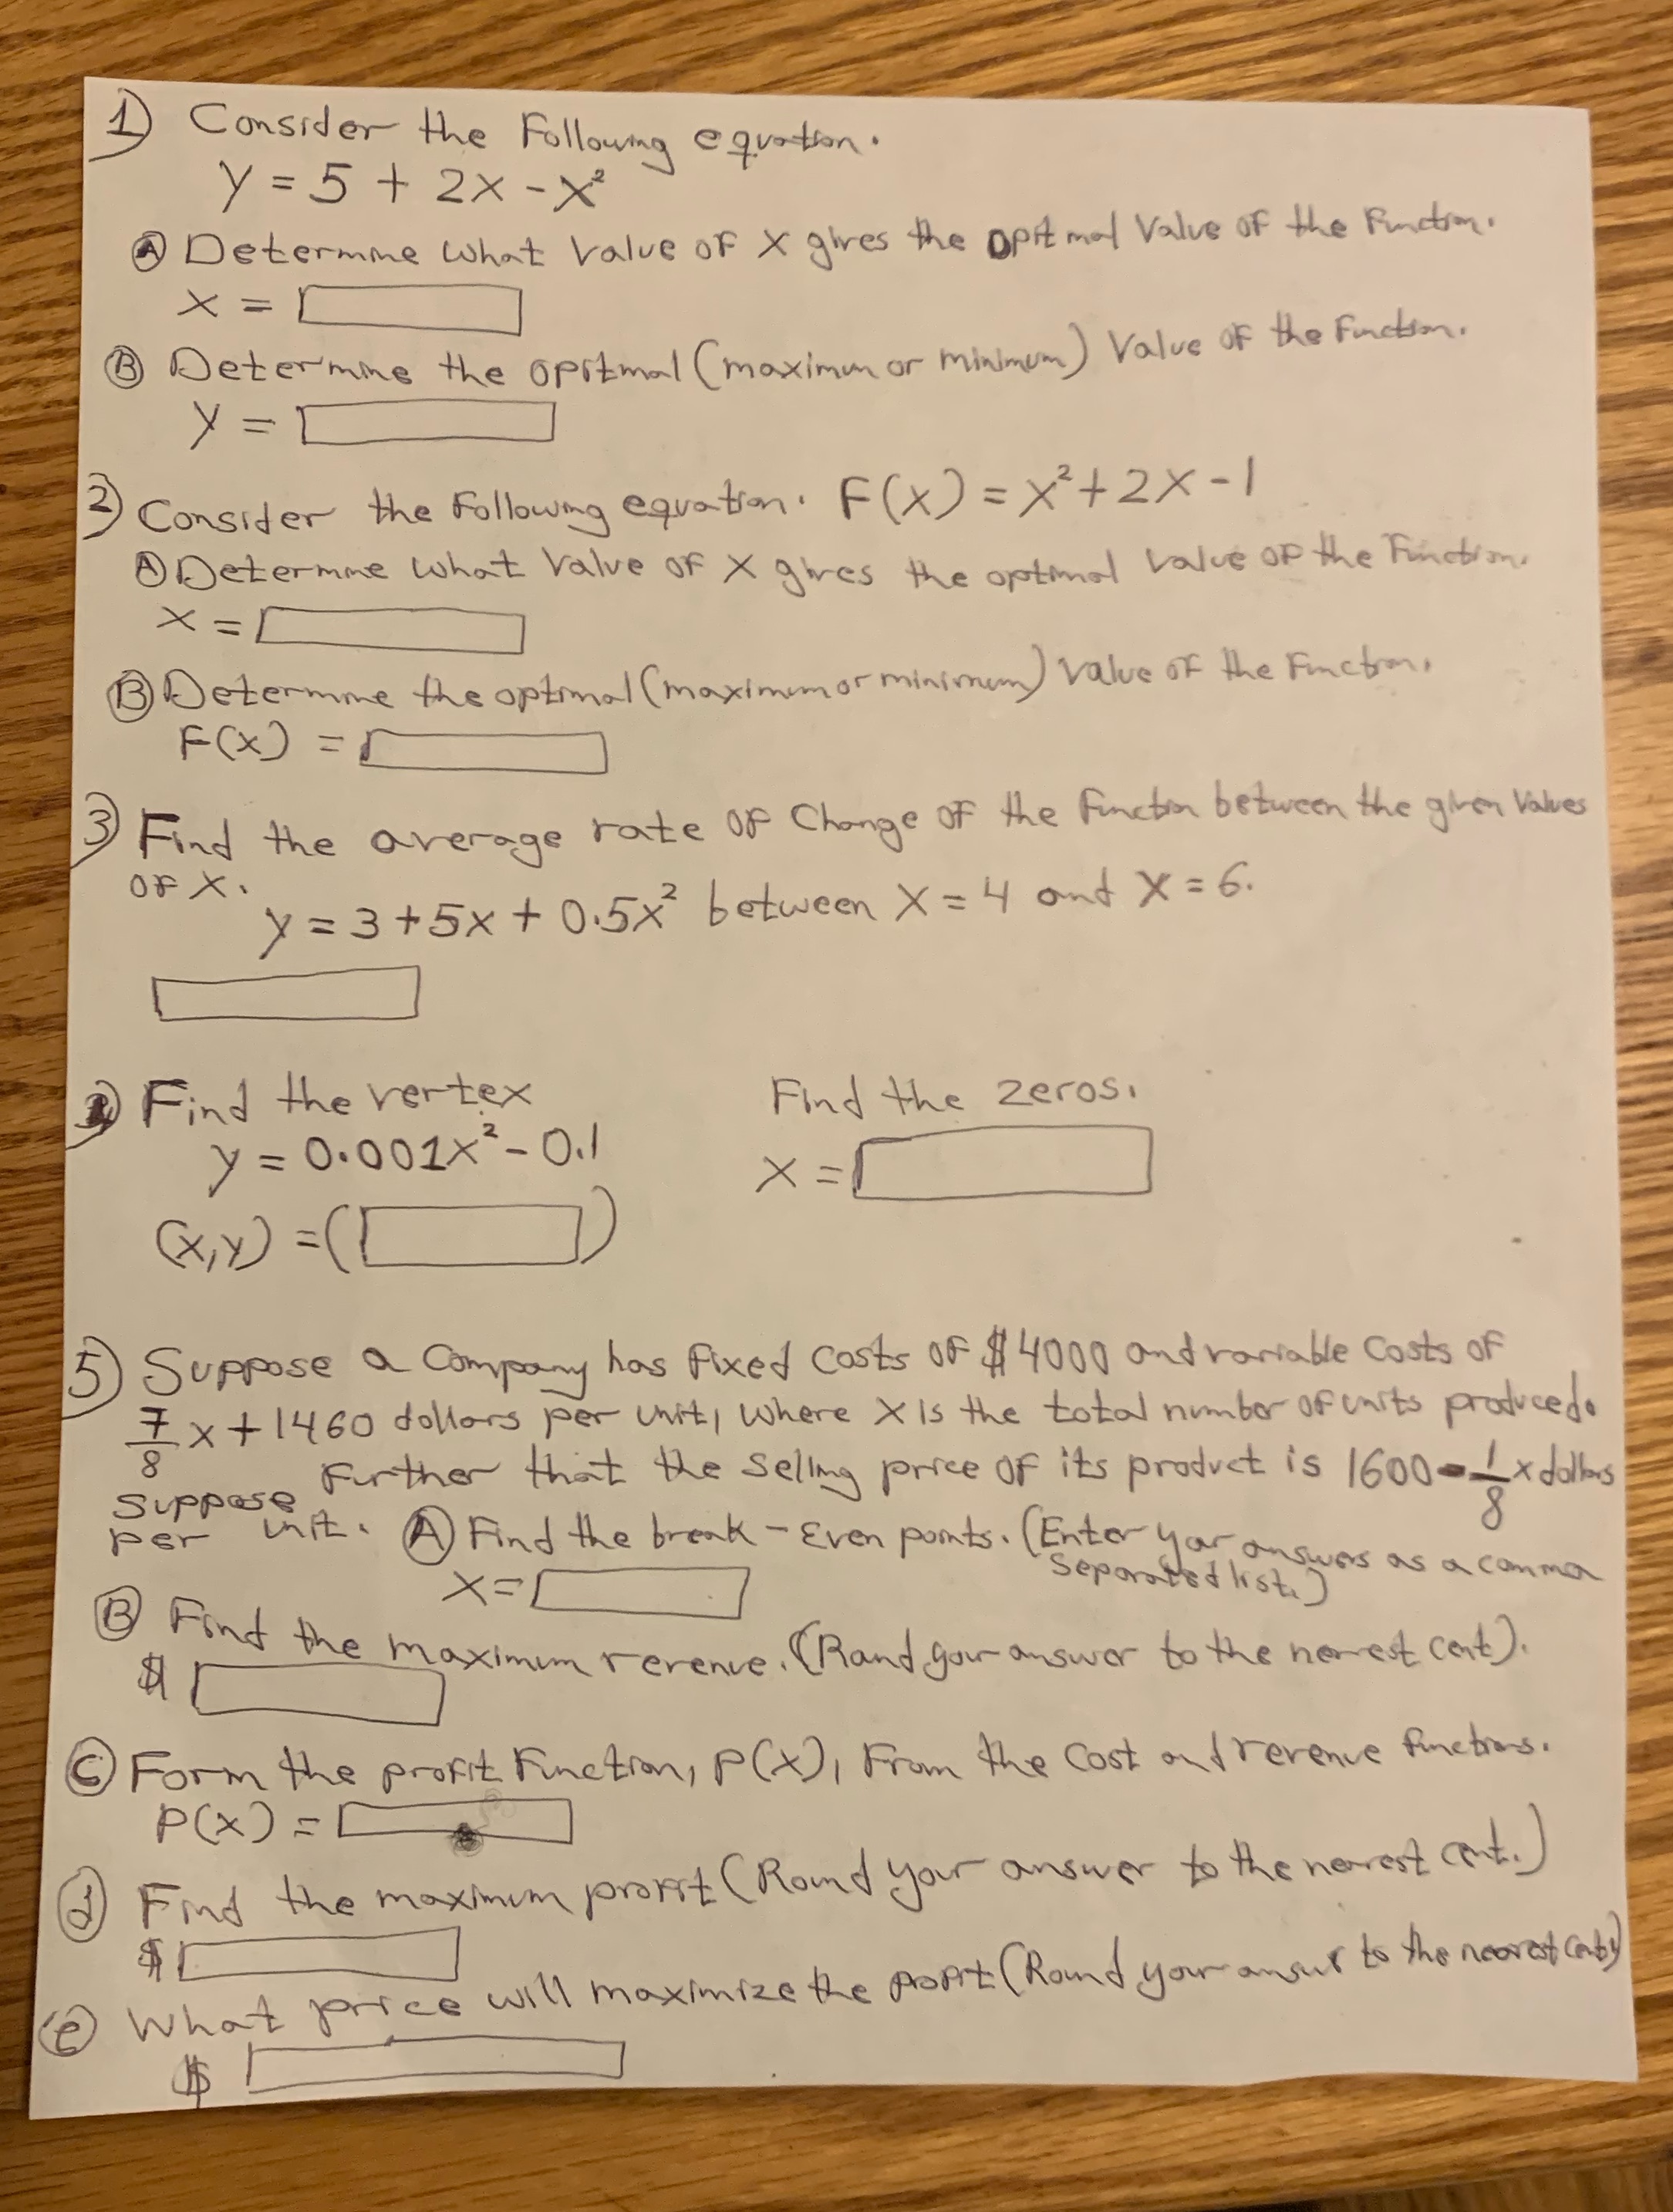 1) Consider the Following equation.
y = 5 + 2x - x²
Ⓐ Determine what value of x gives the opitmal Value of the Function.
x =
Ⓑ Determine the opitmal (maximum or minimum) Value of the Function.
y =
2) Consider the Following equation. F(x) = x² + 2x - 1
Ⓐ Determine what Value of x gives the optimal value of the Function.
x =
Ⓑ Determine the optimal (maximum or minimum) value of the Function.
F(x) =
3) Find the average rate of Change of the function between the given Values
of x.
y = 3 + 5x + 0.5x² between x = 4 and x = 6.
) Find the vertex Find the zeros.
y = 0.001x² - 0.1
x =
(x,y) = ( )
5) Suppose a Company has fixed costs of $4000 and variable costs of
7/8 x + 1460 dollars per unit, where x is the total number of units produced.
Suppose Further that the selling price of its product is 1600 - 1/8 x dollars
per unit. Ⓐ Find the break-Even points. (Enter your answers as a comma
Separated list.)
x =
Ⓑ Find the maximum revenue. (Round your answer to the nearest cent).
$
Ⓒ Form the profit Function, P(x), From the cost and revenue functions.
P(x) =
ⓓ Find the maximum profit (Round your answer to the nearest cent.)
$
ⓔ What price will maximize the profit (Round your answer to the nearest cent.)
$